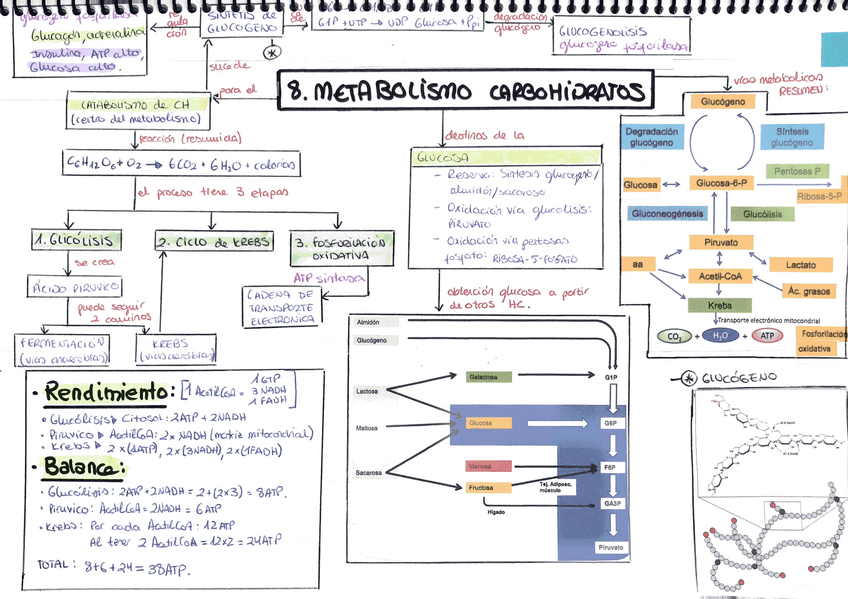 glucógeno fosforilasa
Glucagón, adrenalina
Insulina, ATP alto,
Glucosa alto.
re
gula
ción
SÍNTESIS de
GLUCÓGENO
G1P + UTP → UDP Glucosa + Ppi
degradación
glucógeno
GLUCOGENOLISIS
glucógeno fosforilasa
*
sucede
para el
8. METABOLISMO CARBOHIDRATOS
vías metabólicas
RESUMEN:
CATABOLISMO de CH
(centro del metabolismo)
reacción (resumida)
C6H12O6 + O2 → 6CO2 + 6H2O + calorías
el proceso tiene 3 etapas
1. GLICÓLISIS
2. Ciclo de KREBS
3. FOSFORILACIÓN
OXIDATIVA
se crea
ÁCIDO PIRÚVICO
puede seguir
2 caminos
FERMENTACIÓN
(vías anaerobias)
KREBS
(vías aerobias)
ATP sintasa
CADENA DE
TRANSPORTE
ELECTRÓNICA
destinos de la
GLUCOSA
- Reserva: Síntesis glucógeno/
almidón/sacarosa
- Oxidación vía glucolisis:
PIRUVATO
- Oxidación vía pentosas
fosfato: RIBOSA-5-FOSFATO
obtención glucosa a partir
de otros HC.
Glucógeno
Degradación
glucógeno
Síntesis
glucógeno
Pentosas P
Glucosa
Glucosa-6-P
Ribosa-5-P
Gluconeogénesis
Glucólisis
Piruvato
aa
Lactato
Acetil-CoA
Ác. grasos
Krebs
Transporte electrónico mitocondrial
CO2 + H2O + ATP
Fosforilación
oxidativa
Almidón
Glucógeno
Galactosa
G1P
Lactosa
Maltosa
Glucosa
G6P
Sacarosa
Manosa
F6P
Fructosa
Tej. Adiposo,
músculo
Hígado
GA3P
Piruvato
· Rendimiento: [1 AcetilCoA = 1GTP
3NADH
1FADH]
· Glucólisis → Citosol: 2ATP + 2NADH
· Piruvico → AcetilCoA: 2 x NADH (matriz mitocondrial)
· Krebs → 2x(1ATP), 2x(3NADH), 2x(1FADH)
· Balance:
· Glucólisis: 2ATP + 2NADH = 2 + (2x3) = 8ATP.
· Piruvico: AcetilCoA = 2NADH = 6ATP
· Krebs: Por cada AcetilCoA: 12ATP
Al tener 2 AcetilCoA = 12x2 = 24ATP
TOTAL: 8+6+24 = 38ATP.
* GLUCÓGENO